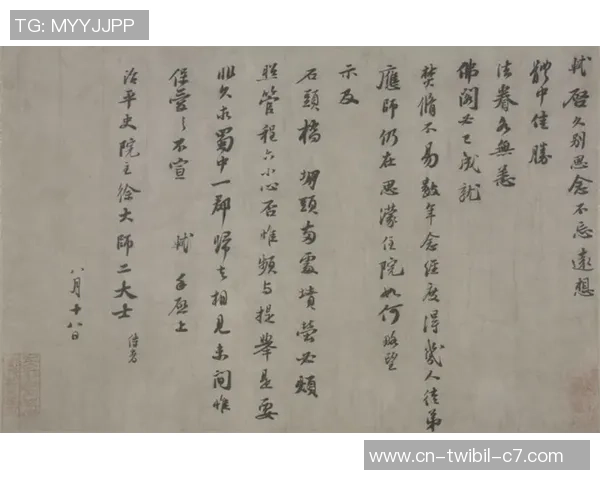 TG: MYYJJPP
軾啓久別思念不忘遠想
體中佳勝
法眷各無恙
佛閣必已成就
焚脩不易數年念經度得幾人徒弟
應師仍在思濛住院如何略望
示及
石頭橋堋頭兩處墳塋必煩
照管程六小心否惟頻與提舉是要
非久求蜀中一郡歸去相見未間惟
保愛之不宣 軾手啓上
治平史院主徐大師二大士 侍者
八月十八日
www.cn-twibil-c7.com